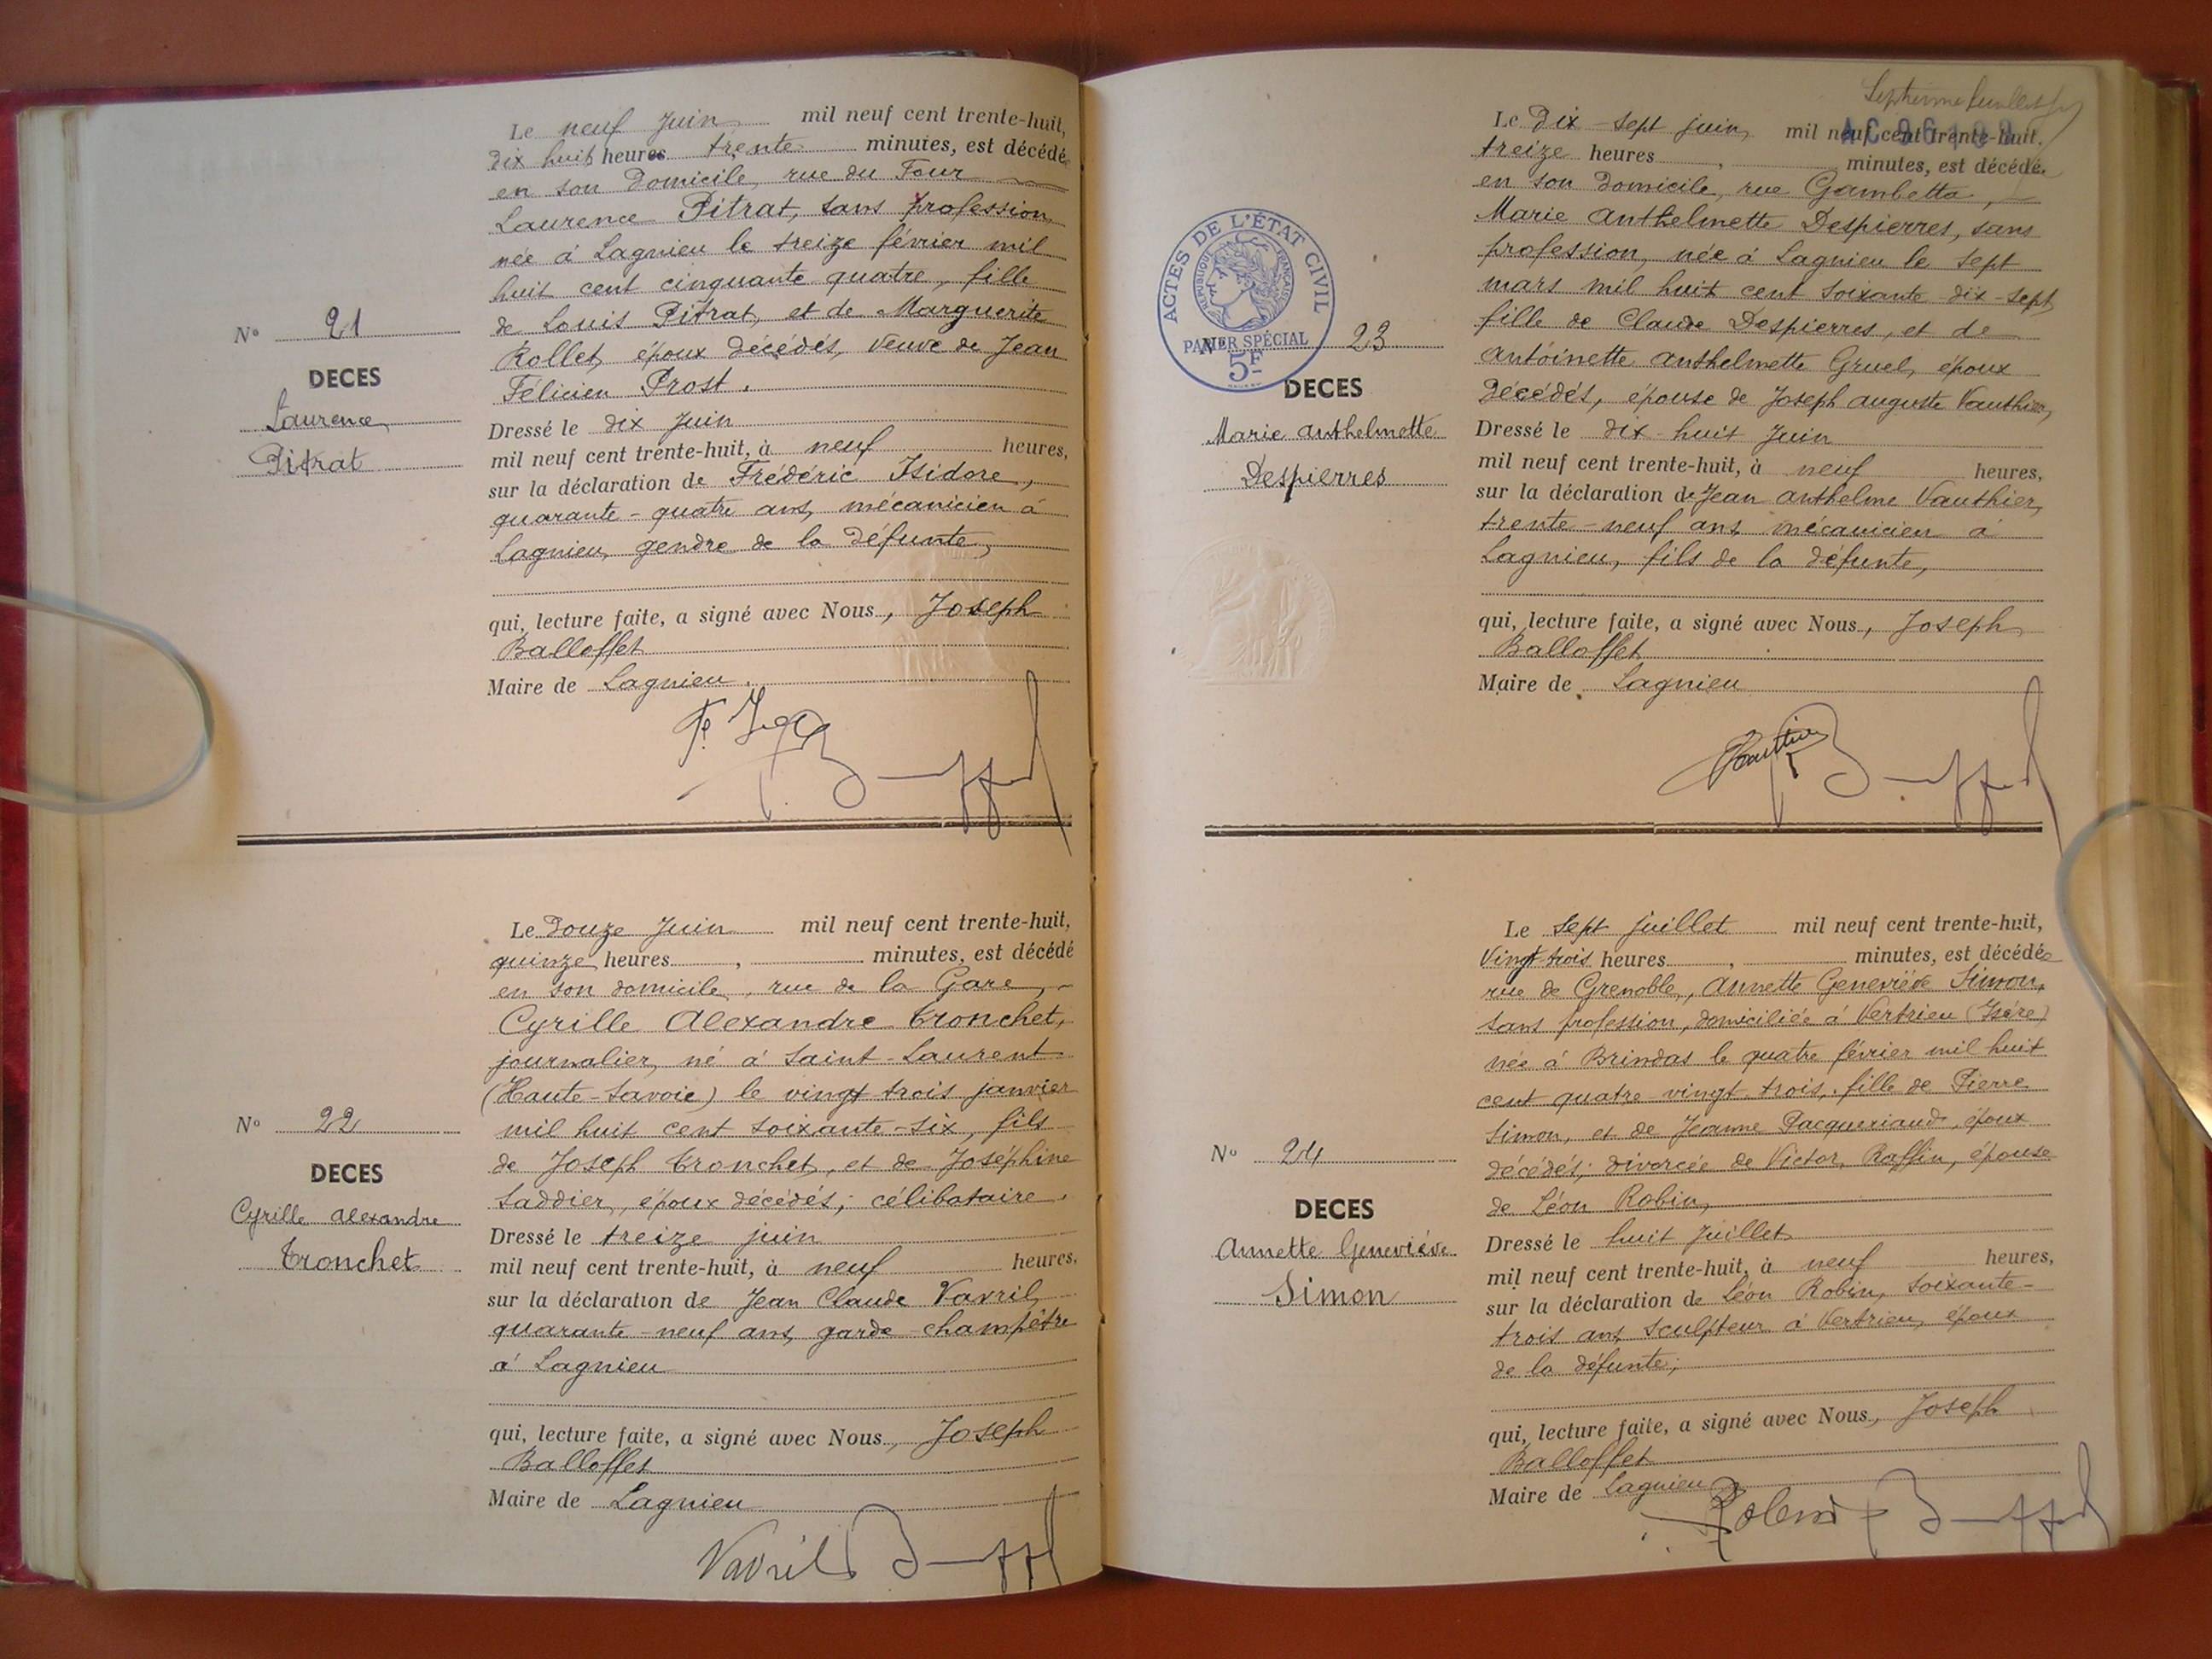 Le neuf Juin mil neuf cent trente-huit,
Dix huit heures trente minutes, est décédée
en son Domicile, rue du Four
Laurence Pitrat, sans profession
née à Lagnieu le treize février mil
huit cent cinquante quatre, fille
de Louis Pitrat, et de Marguerite
Rollet, époux décédés, Veuve de Jean
Félicien Prost.
N° 21
DECES
Laurence
Pitrat
Dressé le dix Juin
mil neuf cent trente-huit, à neuf heures,
sur la déclaration de Frédéric Isidore,
quarante-quatre ans, mécanicien à
Lagnieu, gendre de la défunte,
qui, lecture faite, a signé avec Nous, Joseph
Balloffet
Maire de Lagnieu.
Le Douze Juin mil neuf cent trente-huit,
quinze heures, minutes, est décédé
en son domicile, rue de la Gare,
Cyrille Alexandre Tronchet,
journalier, né à Saint-Laurent
(Haute-Savoie) le vingt trois janvier
mil huit cent soixante-six, fils
de Joseph Tronchet, et de Joséphine
Saddier, époux décédés; célibataire.
N° 22
DECES
Cyrille Alexandre
Tronchet
Dressé le treize juin
mil neuf cent trente-huit, à neuf heures,
sur la déclaration de Jean Claude Vavril,
quarante-neuf ans, garde-champêtre
à Lagnieu
qui, lecture faite, a signé avec Nous, Joseph
Balloffet
Maire de Lagnieu
Vavril
Le Dix-sept juin, mil neuf cent trente-huit,
treize heures, minutes, est décédée
en son Domicile, rue Gambetta,
Marie Anthelmette Despierres, sans
profession, née à Lagnieu le sept
mars mil huit cent soixante-dix-sept,
fille de Claude Despierres, et de
Antoinette Anthelmette Gruel, époux
Décédés, épouse de Joseph Auguste Vauthier,
ACTES DE L'ÉTAT CIVIL
RÉPUBLIQUE FRANÇAISE
PAPIER SPÉCIAL
5F
N° 23
DECES
Marie Anthelmette
Despierres
Dressé le dix-huit Juin
mil neuf cent trente-huit, à neuf heures,
sur la déclaration de Jean Anthelme Vauthier,
trente-neuf ans, mécanicien à
Lagnieu, fils de la défunte,
qui, lecture faite, a signé avec Nous, Joseph
Balloffet
Maire de Lagnieu
Le sept juillet mil neuf cent trente-huit,
Vingt-trois heures, minutes, est décédée
rue de Grenoble, Annette Geneviève Simon,
sans profession, domiciliée à Vertrieu (Isère)
née à Brindas le quatre février mil huit
cent quatre-vingt-trois, fille de Pierre
Simon, et de Jeanne Pacqueriaud, époux
décédés; divorcée de Victor Raffin, épouse
de Léon Robin,
N° 24
DECES
Annette Geneviève
Simon
Dressé le huit Juillet
mil neuf cent trente-huit, à neuf heures,
sur la déclaration de Léon Robin, soixante-
trois ans, sculpteur à Vertrieu, époux
de la défunte;
qui, lecture faite, a signé avec Nous, Joseph
Balloffet
Maire de Lagnieu